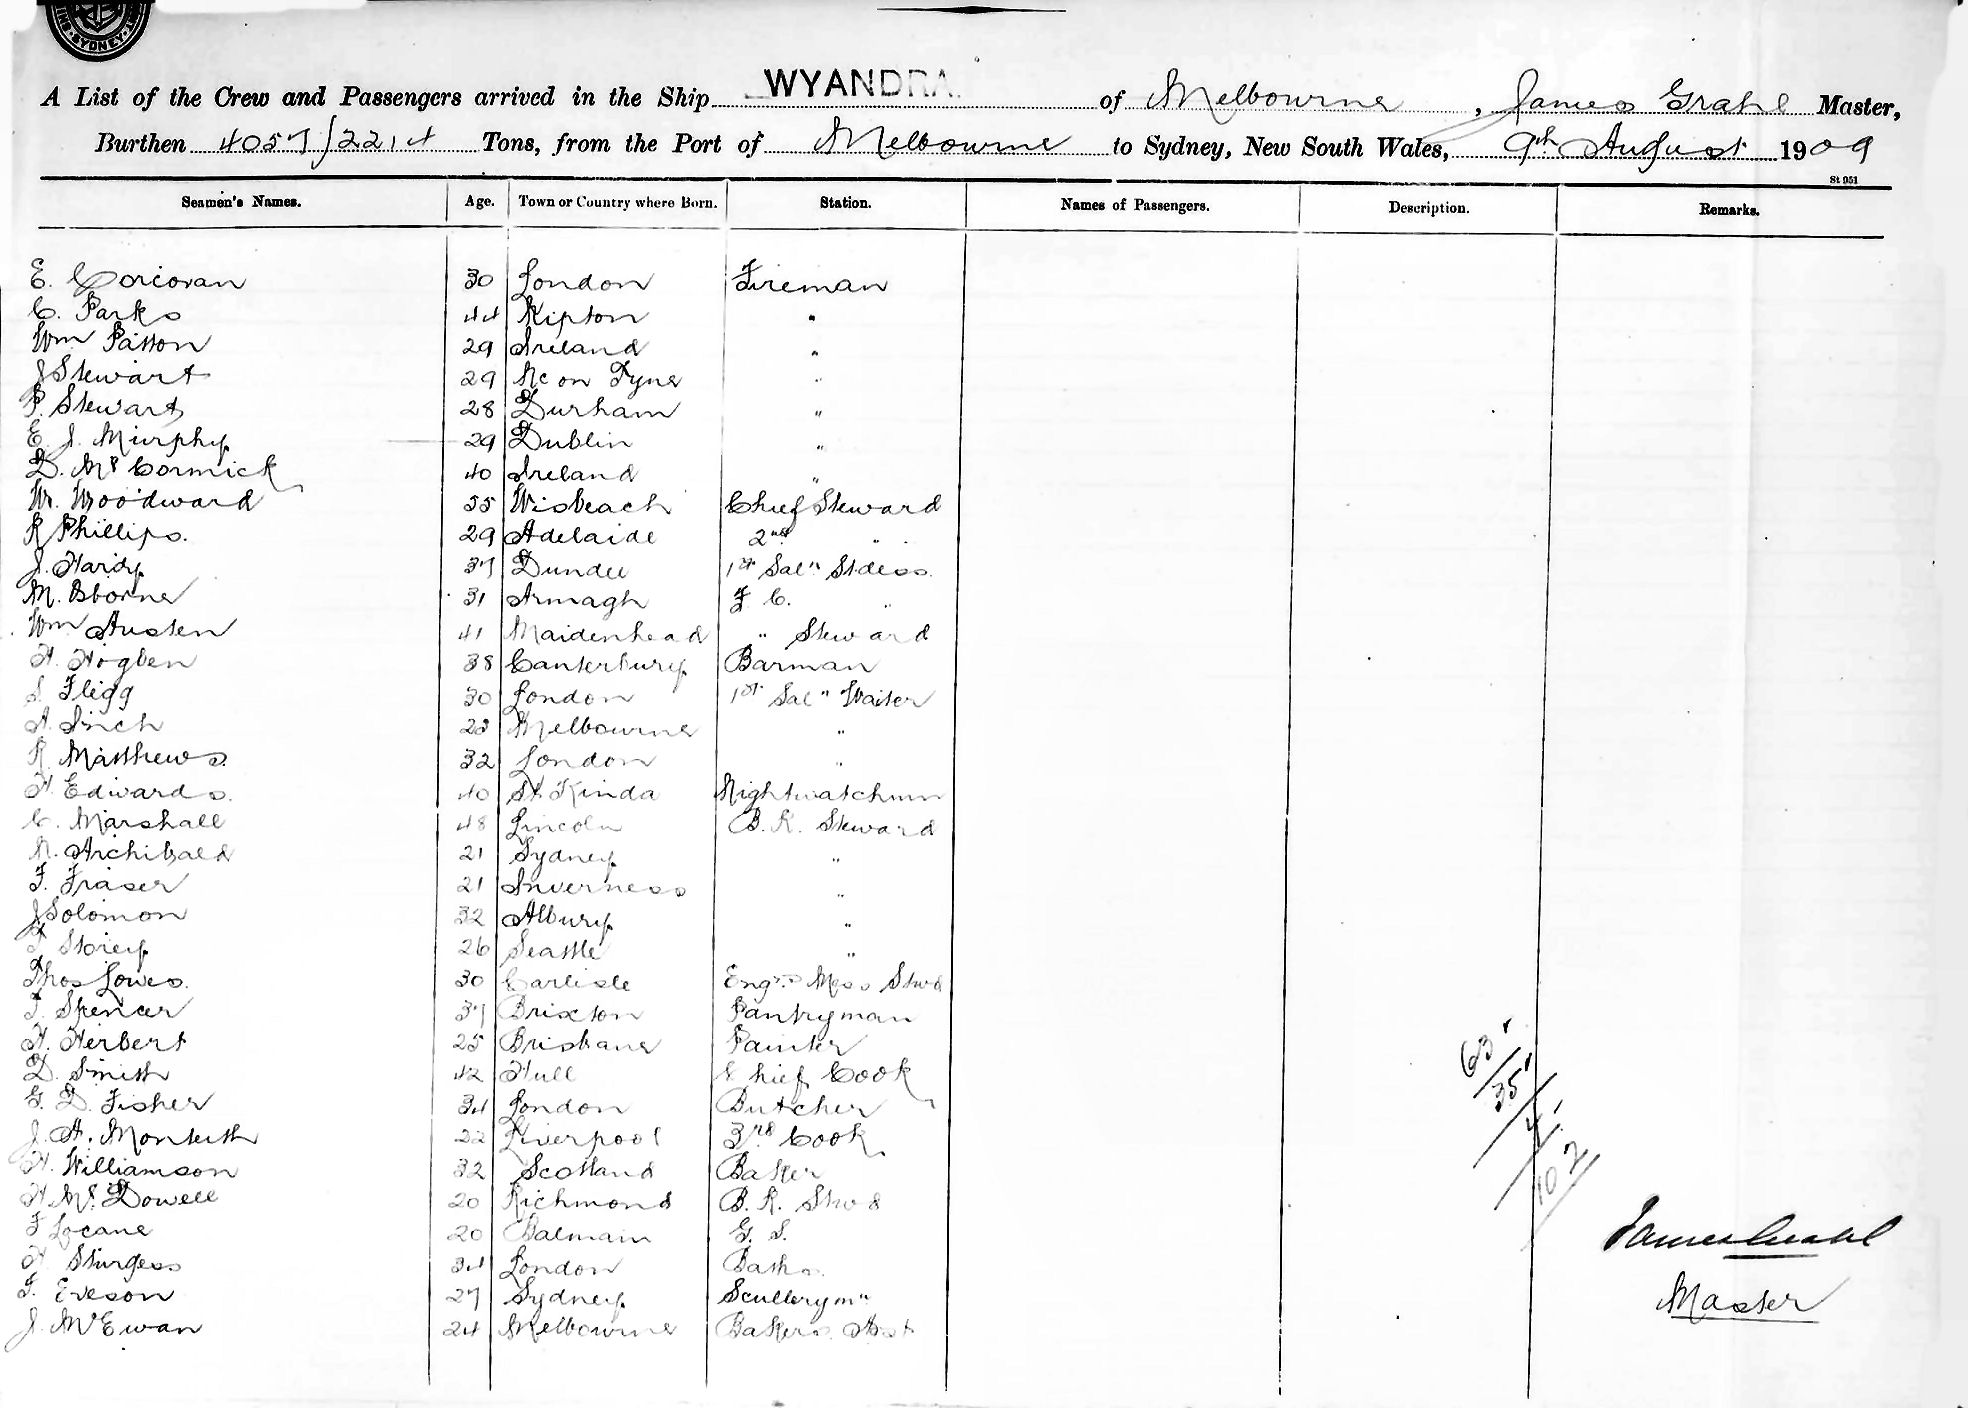 SYDNEY
A List of the Crew and Passengers arrived in the Ship WYANDRA. of Melbourne, James Grahl Master,
Burthen 4057/2214 Tons, from the Port of Melbourne to Sydney, New South Wales, 9th August 1909
St 951
Seamen's Names. Age. Town or Country where Born. Station. Names of Passengers. Description. Remarks.
E. Corcoran 30 London Fireman
C. Parks 44 Kipton "
Wm Patton 29 Ireland "
J Stewart 29 Nc on Tyne "
P. Stewart 28 Durham "
E. J. Murphy 29 Dublin "
D. Mc Cormick 40 Ireland "
W. Woodward 55 Wisbeach Chief Steward
R Phillips. 29 Adelaide 2nd "
J. Hardy 37 Dundee 1st Sal" Stdess.
M. Osborne 31 Armagh F C. "
Wm Austen 41 Maidenhead " Steward
H. Hogben 38 Canterbury Barman
S. Flegg 30 London 1st Sal" Waiter
A. Inch 23 Melbourne "
R. Matthews. 32 London "
H. Edwards. 40 St Kinda Nightwatchmn
C. Marshall 48 Lincoln B. R. Steward
R. Archibald 21 Sydney "
F. Fraser 21 Inverness "
J Solomon 32 Albury "
F Storey 26 Seattle "
Thos Lowes. 30 Carlisle Engrs Mess Stwd
T. Spencer 37 Brixton Pantryman
H. Herbert 25 Brisbane Painter
D. Smith 42 Hull Chief Cook
G. D. Fisher 34 London Butcher
J. A. Monteith 22 Liverpool 3rd Cook
H. Williamson 32 Scotland Baker
H. Mc Dowell 20 Richmond B. R. Stwd
F Locane 20 Balmain G. S.
H. Sturgess 34 London Baths
T. Eveson 27 Sydney Scullerym"
J. McEwan 24 Melbourne Bakers Asst
63
35
4
102
James Grahl
Master